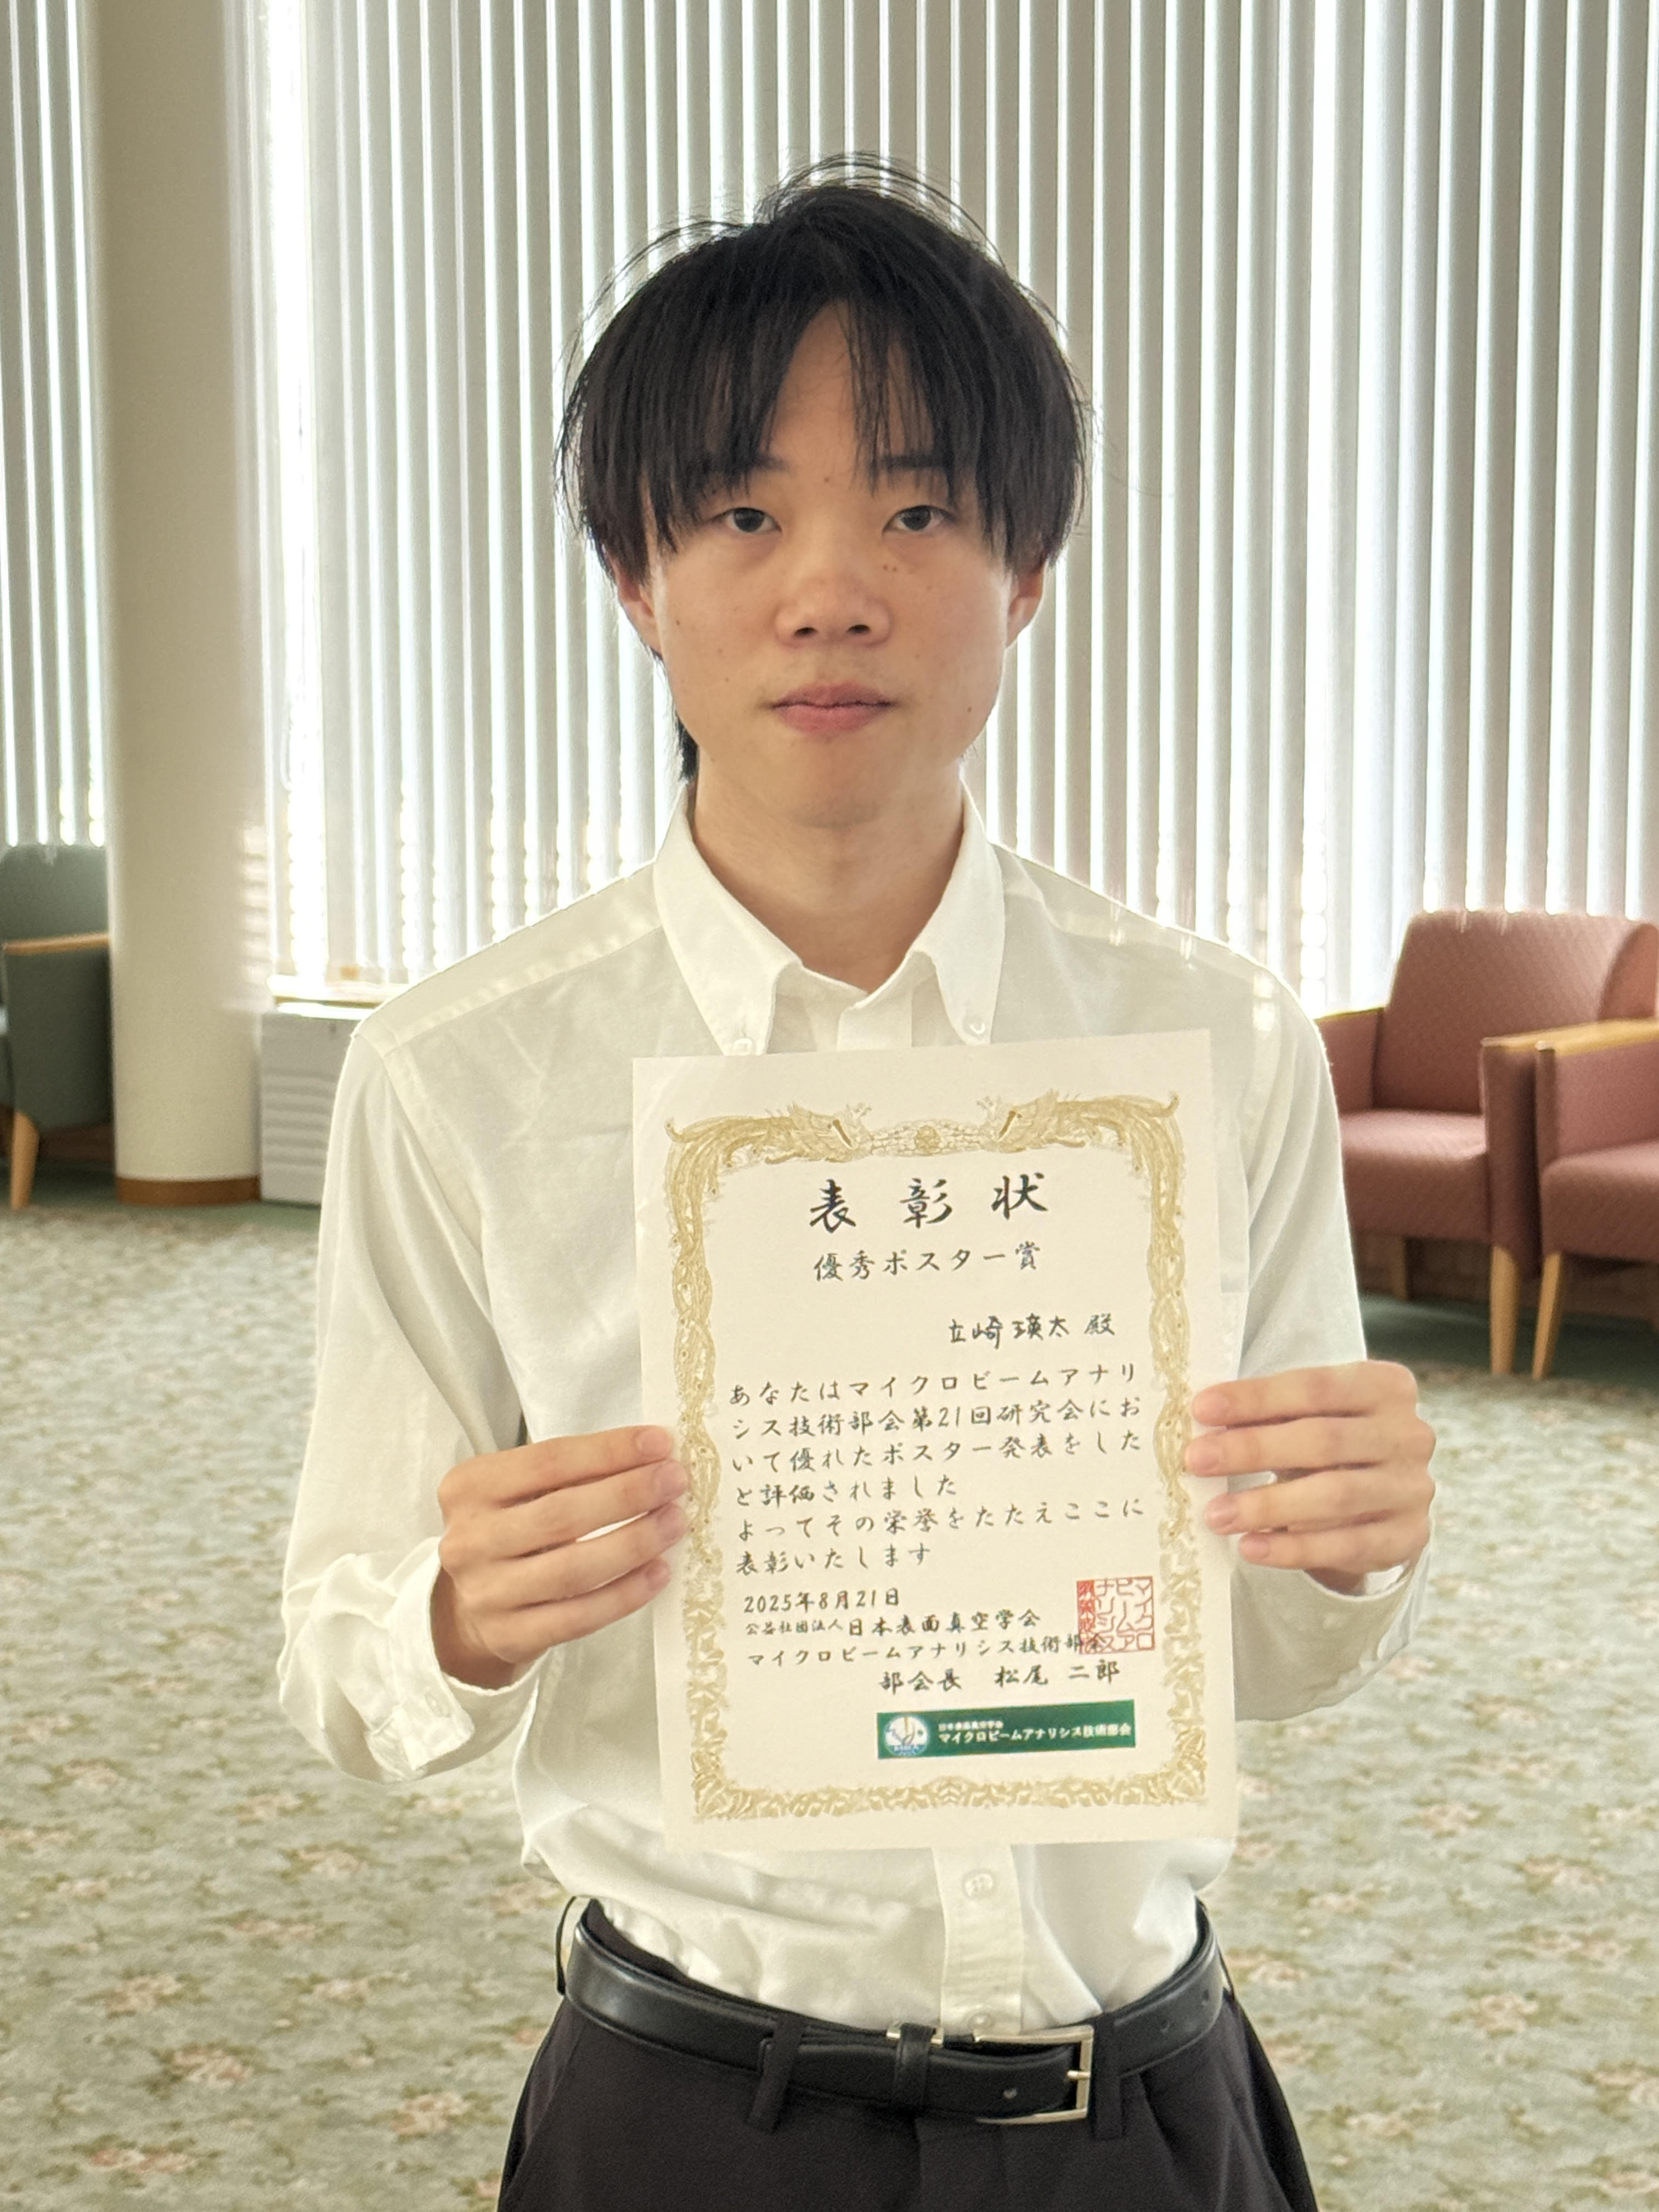 表彰状
優秀ポスター賞
立崎瑛太 殿
あなたはマイクロビームアナリ
シス技術部会第21回研究会にお
いて優れたポスター発表をした
と評価されました
よってその栄誉をたたえここに
表彰いたします
2025年8月21日
公益社団法人日本表面真空学会
マイクロビームアナリシス技術部会
部会長 松尾 二郎
日本表面真空学会
マイクロビームアナリシス技術部会